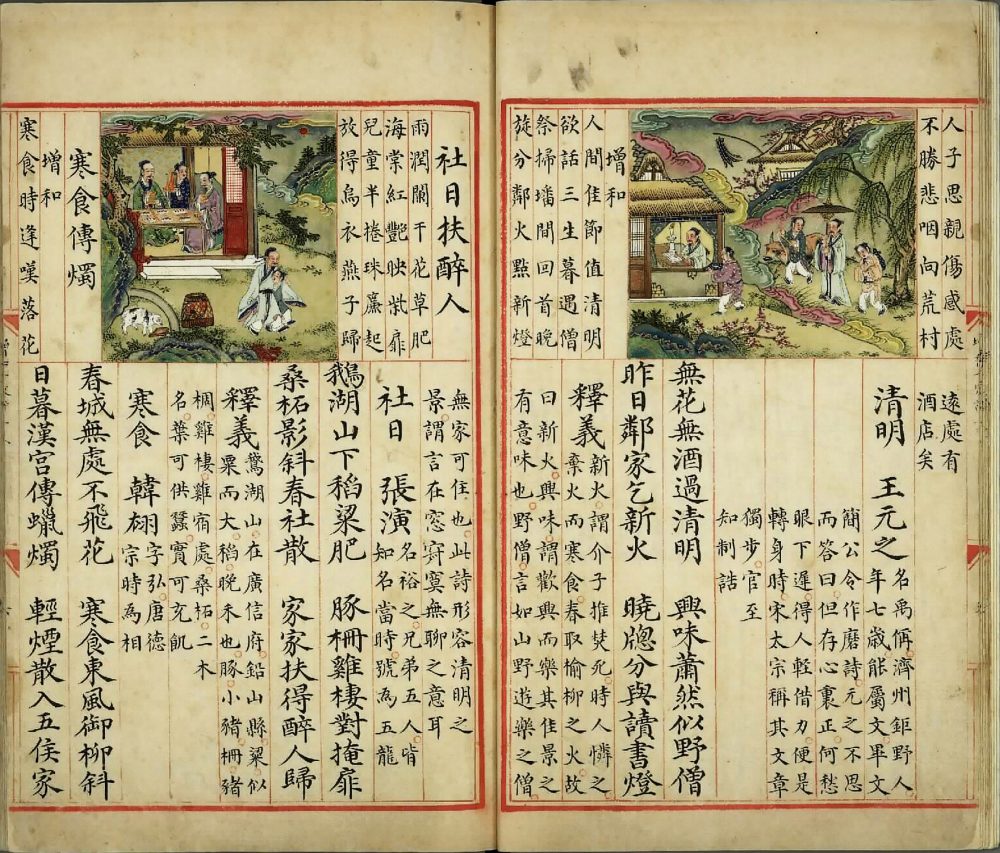 人子思親傷感處
不勝悲咽向荒村
增和
人間佳節值清明
欲話三生暮遇僧
祭掃墦間回首晚
旋分鄰火點新燈
遠處有
酒店矣
清明 王元之
名禹偁濟州鉅野人
年七歲能屬文畢文
簡公令作磨詩元之不思
而答曰但存心裏正何愁
眼下遲得人輕借力便是
轉身時宋太宗稱其文章
獨步官至
知制誥
無花無酒過清明 興味蕭然似野僧
昨日鄰家乞新火 曉牕分與讀書燈
釋義
新火謂介子推焚死時人憐之
棄火而寒食春取榆柳之火故
曰新火興味謂歡興而樂其佳景之
有意味也野僧言如山野遊樂之僧
社日扶醉人
雨潤闌干花草肥
海棠紅艷映紫扉
兒童半捲珠簾起
放得烏衣燕子歸
寒食傳燭
增和
寒食時逢嘆落花
無家可住也此詩形容清明之
景謂言在窓寂寞無聊之意耳
社日 張演
名裕之兄弟五人皆
知名當時號為五龍
鵝湖山下稻粱肥 豚柵雞棲對掩扉
桑柘影斜春社散 家家扶得醉人歸
釋義
鵞湖山在廣信府鉛山縣粱似
粟而大稻晚禾也豚小豬柵豬
棡雞棲雞宿處桑柘二木
名葉可供蠶實可充飢
寒食 韓翃
字弘唐德
宗時為相
春城無處不飛花 寒食東風御柳斜
日暮漢宮傳蠟燭 輕煙散入五侯家